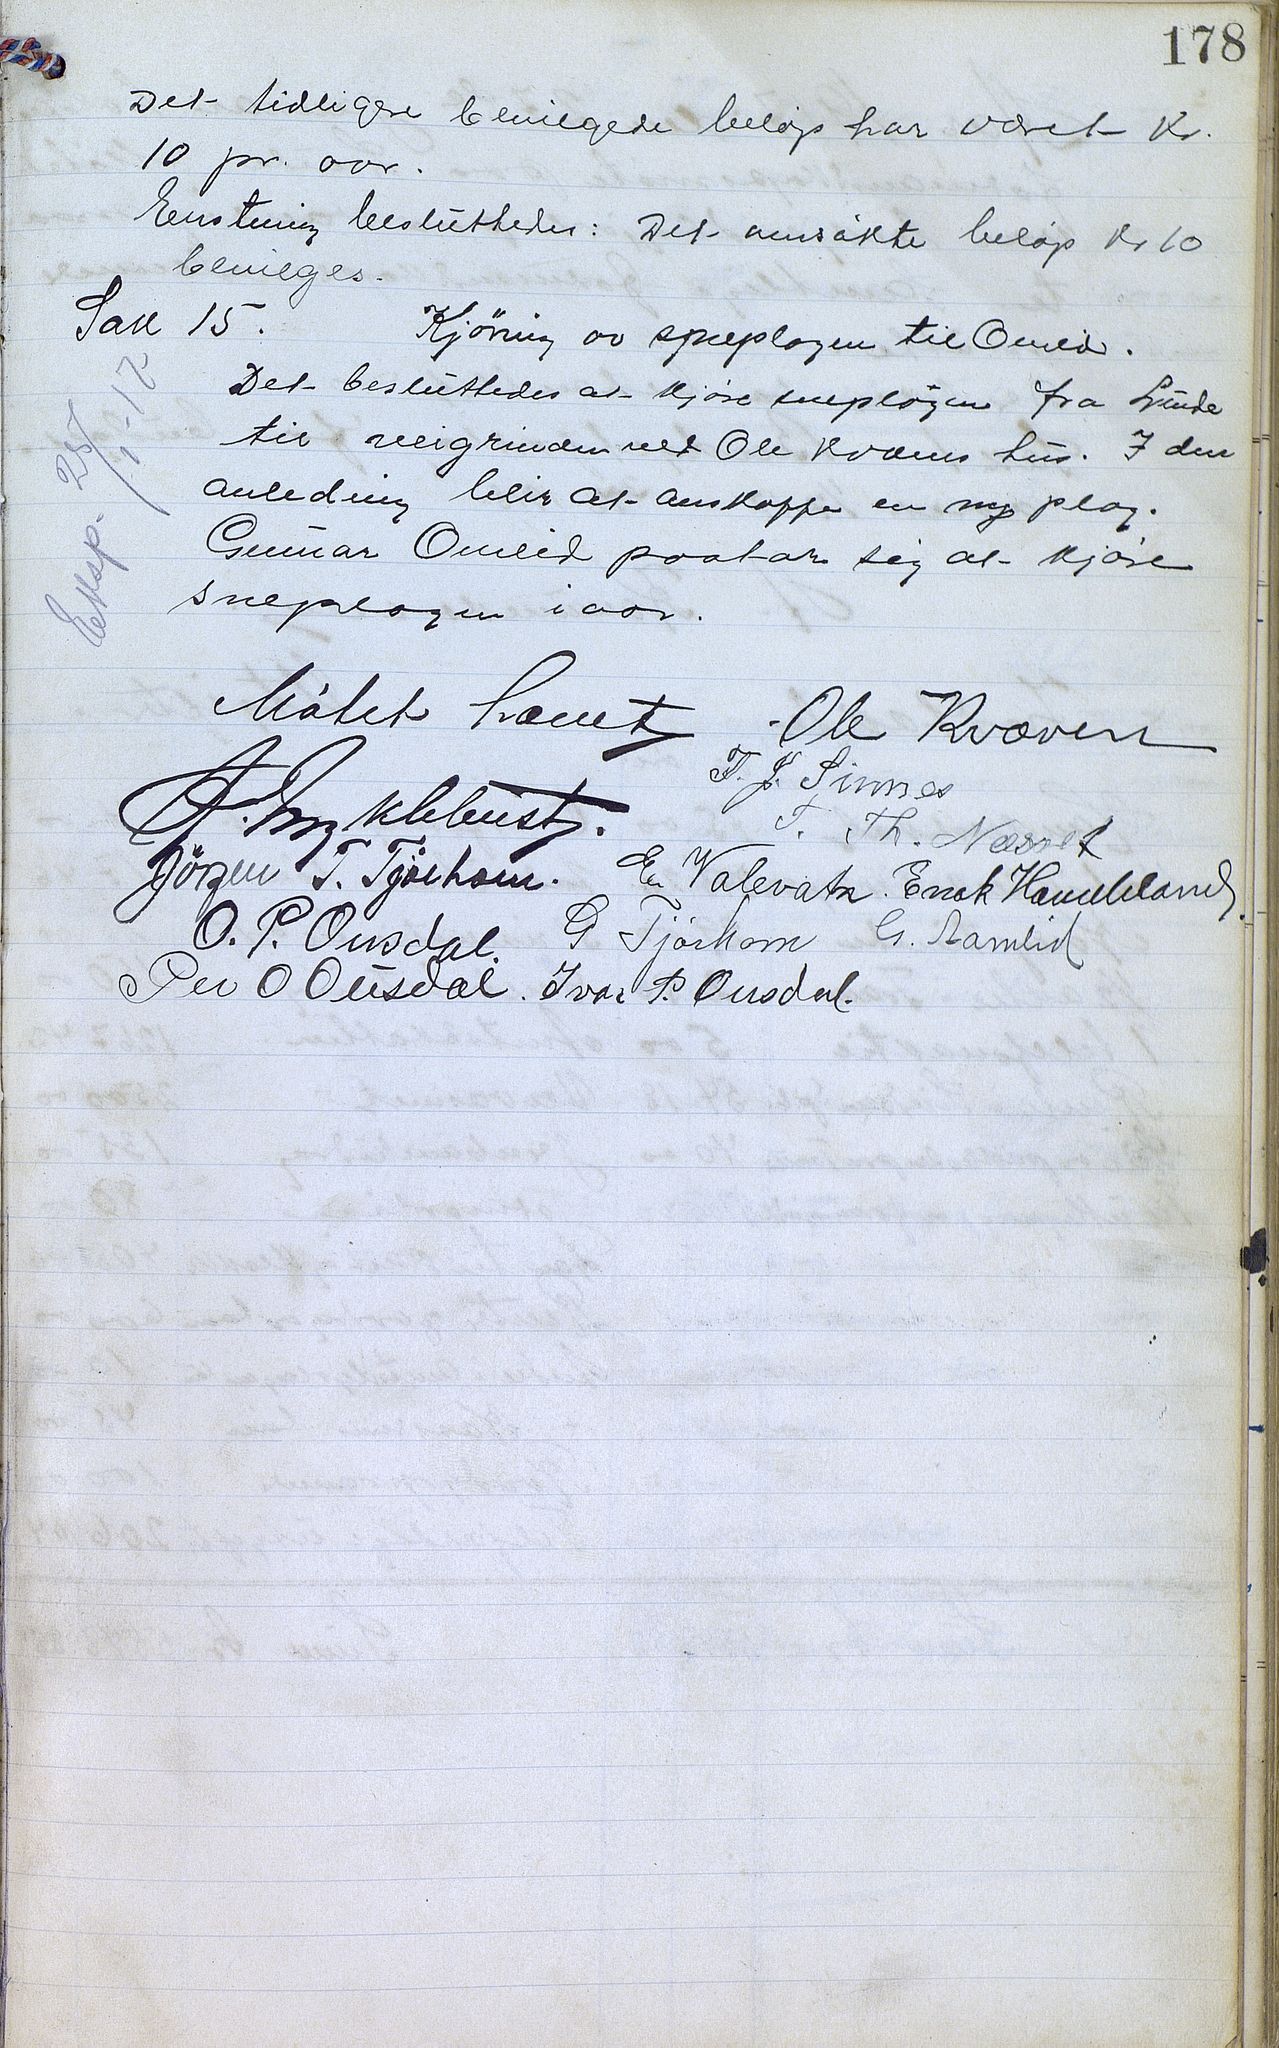 178
Det tidligere bevilgede beløp har været Kr.
10 pr. aar.
Enstemig beslutthedes: Det ansøkte beløp Kr 10
bevilges.
Sak 15. Kjöring av sneplogen til Omlid.
Det besluttedes at kjöre sneplogen fra Lunde
til veigrinden ved Ole Kvævens hus. I den
anledning blir at anskaffe en ny plog.
Gunnar Omlid paatar sig at kjöre
sneplogen i aar.
Eksp. 25/1-12
Mötet hævet
Ole Kvæven
T. J. Sinnes
Myklebust.
T. Th. Næsset
Jörgen T. Tjörhom. En Valevatn. Enok Haukeland.
O. P. Ousdal. G Tjörhom G. Aamlid
Per O Ousdal. Ivar P. Ousdal.